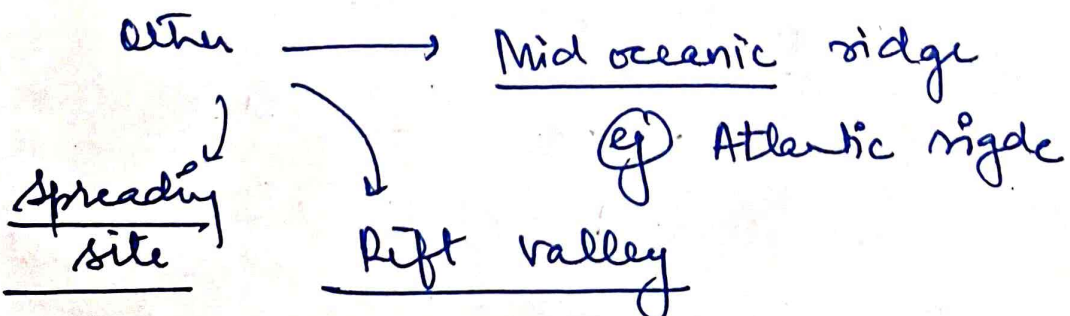 Other → Mid oceanic ridge
eg. Atlantic rigde
Spreading
site
Rift valley